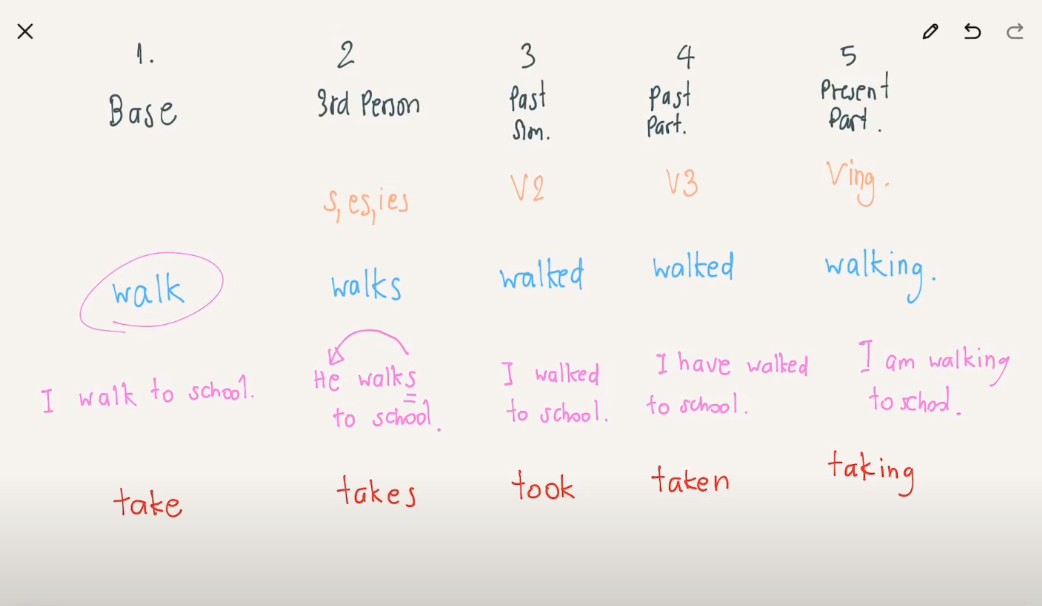 1.
2
3
4
5
Base
3rd Person
Past
Sim.
Past
Part.
Present
Part.
s, es, ies
V2
V3
Ving.
walk
walks
walked
walked
walking.
I walk to school.
He walks
to school.
I walked
to school.
I have walked
to school.
I am walking
to school.
take
takes
took
taken
taking